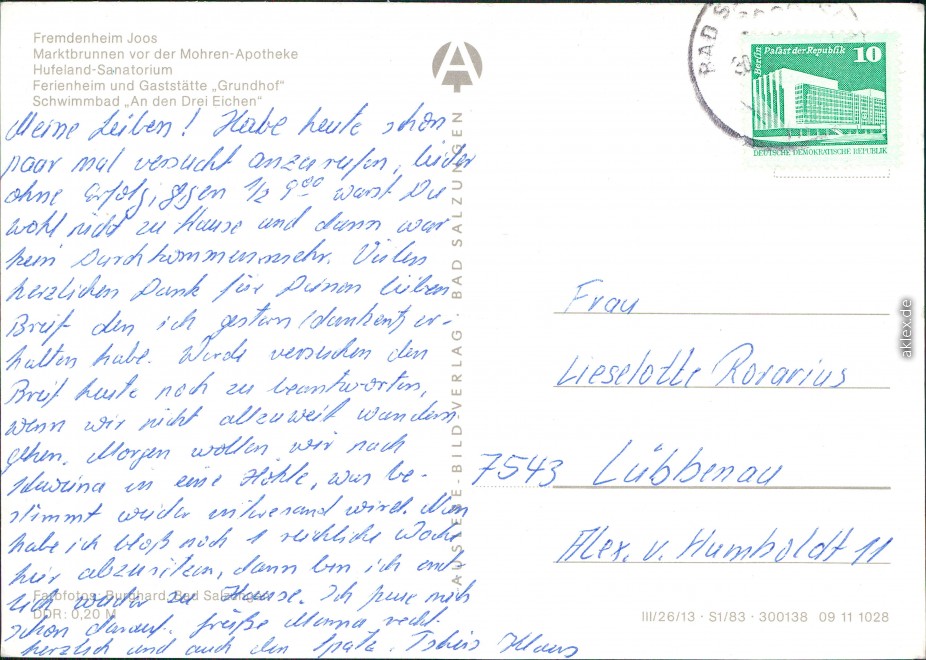 Fremdenheim Joos
Marktbrunnen vor der Mohren-Apotheke
Hufeland-Sanatorium
Ferienheim und Gaststätte „Grundhof“
Schwimmbad „An den Drei Eichen“
Meine Lieben! Habe heute schon
paar mal versucht anzurufen, leider
ohne Erfolg, gegen 1/2 9⁰⁰ warst Du
wohl nicht zu Hause und dann war
kein Durchkommen mehr. Vielen
herzlichen Dank für Deinen lieben
Brief den ich gestern (dankend) er-
halten habe. Werde versuchen den
Brief heute noch zu beantworten,
wenn wir nicht allzuweit wandern
gehen. Morgen wollen wir nach
in eine Höhle, was be-
stimmt wieder interesand wird. Nun
habe ich bloß noch 1 reichliche Woche
hier abzusitzen, dann bin ich end-
lich wieder zu Hause. Ich freue mich
schon darauf. Grüße Mama recht
herzlich und auch den Spatz. Tschüs Klaus
Farbfotos: Burghard, Bad Salzungen
DDR: 0,20 M
AUSLESE-BILD-VERLAG BAD SALZUNGEN
BAD
Berlin Palast der Republik 10
DEUTSCHE DEMOKRATISCHE REPUBLIK
Frau
Lieselotte Rorarius
7543 Lübbenau
Alex. v. Humboldt 11
III/26/13 · S1/83 · 300138 09 11 1028
aklex.de